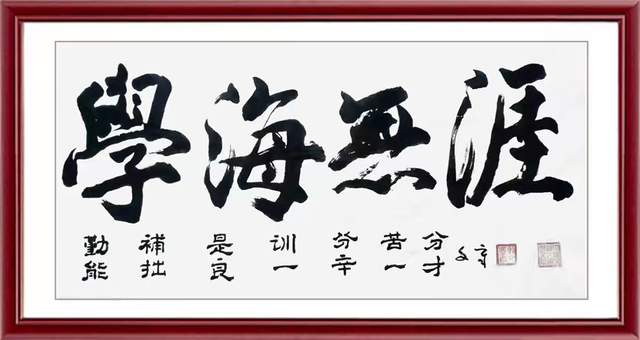 學海無涯
勤能
補拙
是良
训一
分辛
苦一
分才